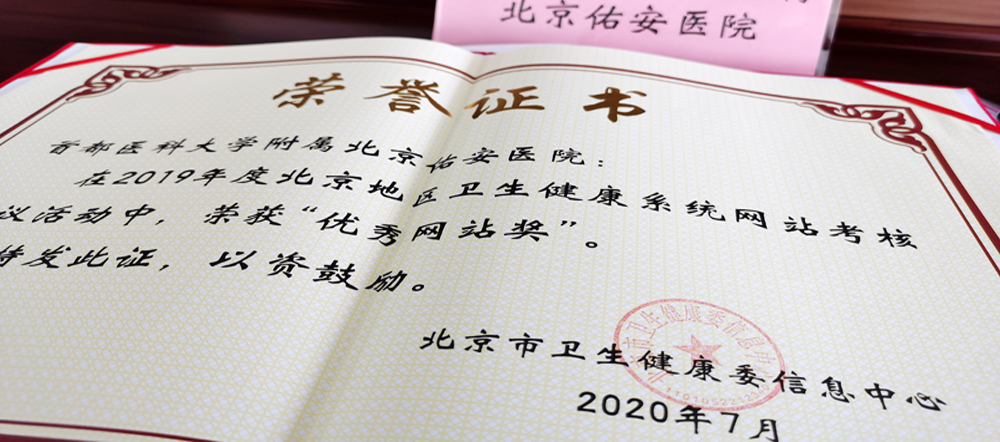 北京佑安医院
荣誉证书
首都医科大学附属北京佑安医院：
在2019年度北京地区卫生健康系统网站考核
议活动中，荣获“优秀网站奖”。
特发此证，以资鼓励。
北京市卫生健康委信息中心
2020年7月